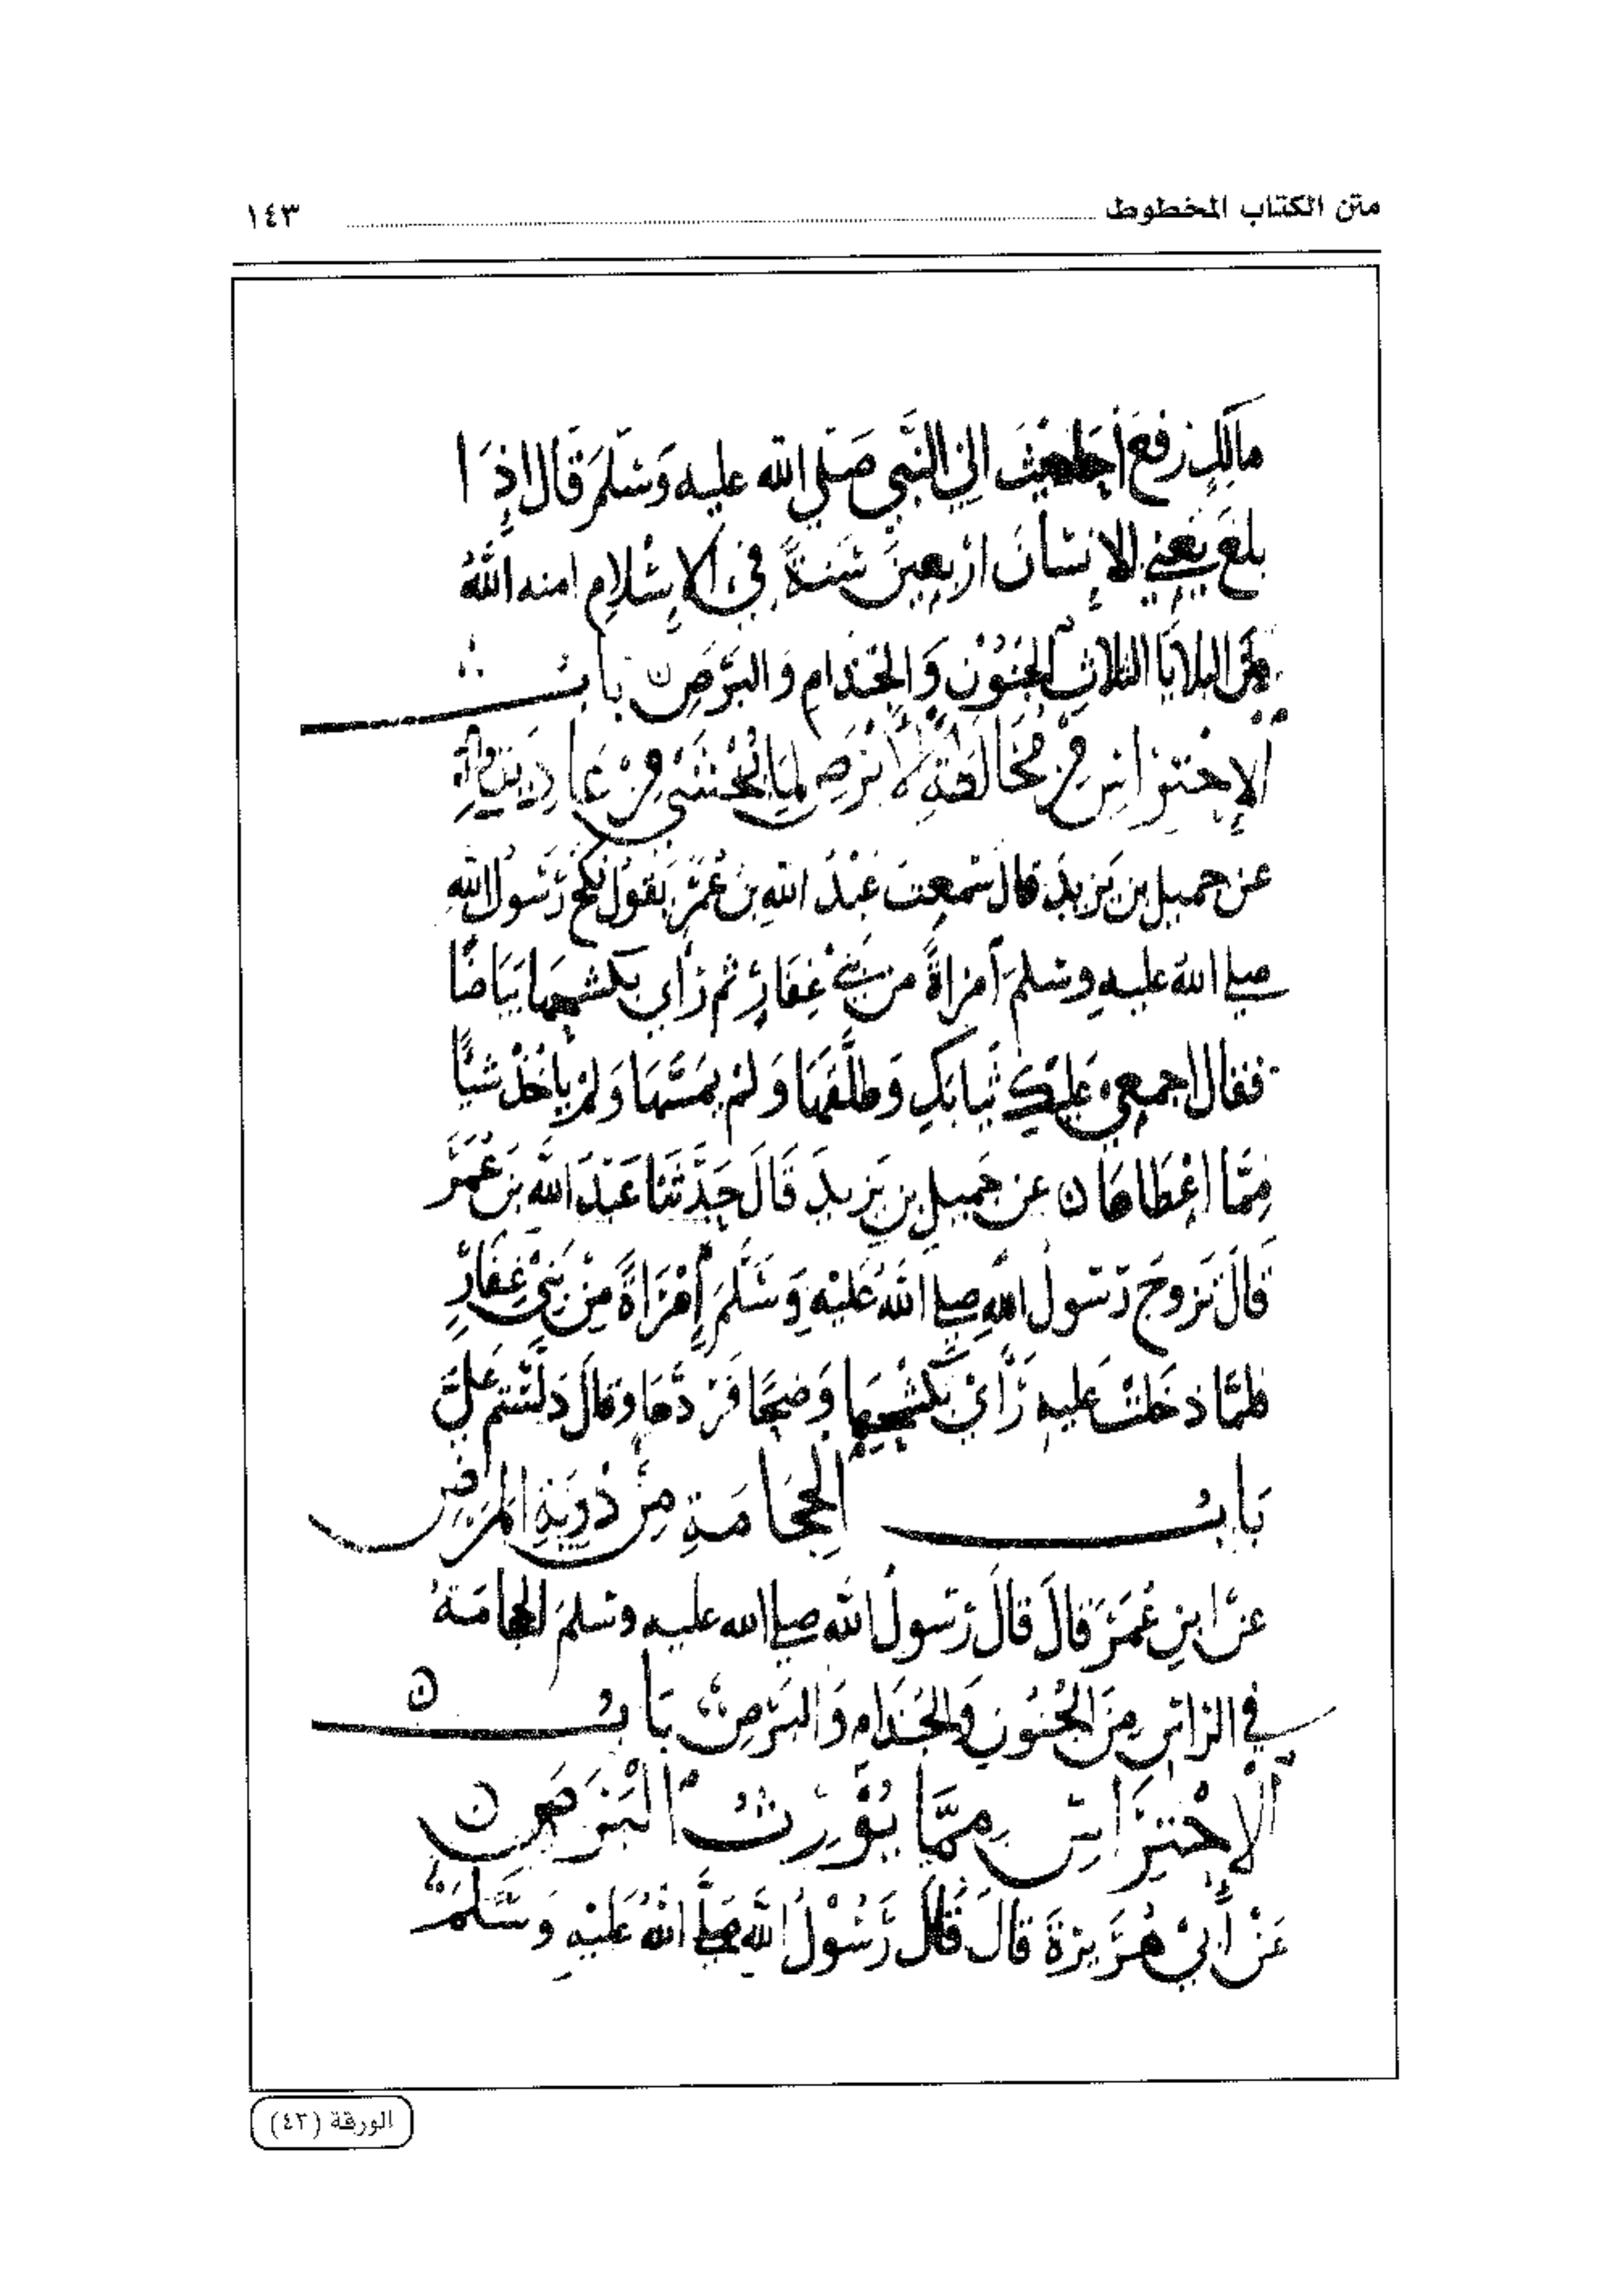 متن الكتاب المخطوط ١٤٣
مالك رفع الحديث الى النبي صلى الله عليه وسلم قال اذا
بلغ يعني الانسان اربعين سنة في الاسلام امنه الله
من البلايا الثلاث الجنون والجذام والبرص باب
الاحتراس من مخالطة الابرص لما يخشى من
عن جميل بن يزيد قال سمعت عبد الله بن عمر يقول نكح رسول الله
صلى الله عليه وسلم امراة من بني غفار ثم راى بكشحها بياضا
فقال اجمعي عليك ثيابك وطلقها ولم يمسها ولم ياخذ شيئا
مما اعطاها ن عن جميل بن يزيد قال حدثنا عبد الله بن عمر
قال تزوج رسول الله صلى الله عليه وسلم امراة من بني غفار
فلما دخلت عليه راى بكشحها وضحا فردها وقال دلستم علي
باب الحجامة من ذرية المرض
عن ابن عمر قال قال رسول الله صلى الله عليه وسلم الحجامة
في الراس من الجنون والجذام والبرص باب ن
الاحتراس مما يورث البرص ن
عن ابي هريرة قال قال رسول الله صلى الله عليه وسلم
الورقة (٤٣)